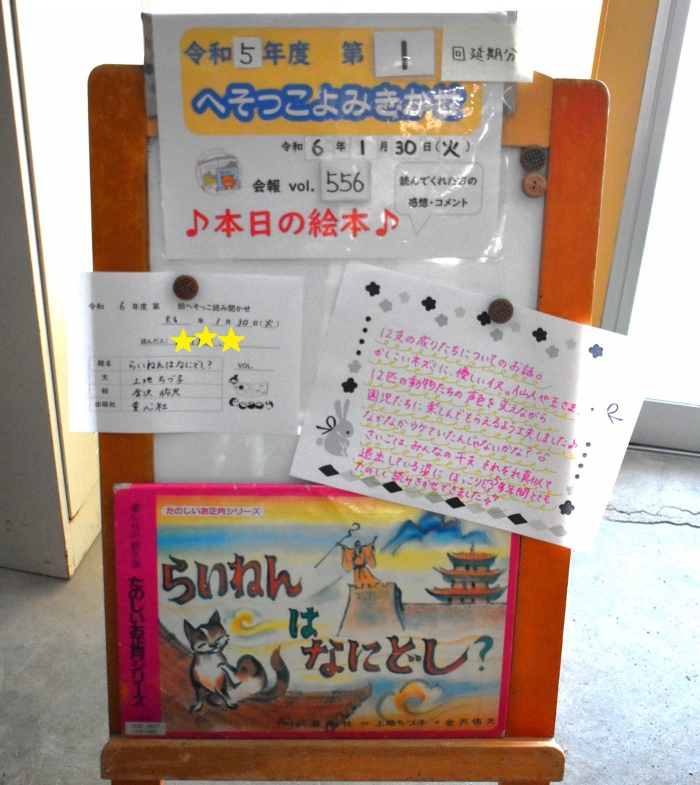 令和5年度 第1回延期分
へそっこよみきかせ
令和 6 年 1 月 30 日(火)
会報 vol. 556
読んでくれた方の
感想・コメント
♪本日の絵本♪
令和 6 年度 第 回へそっこ読み聞かせ
R6 年 1 月 30 日(火)
読んだ人
題名 らいねんはなにどし? VOL.
文 上地ちづ子
絵 金沢佑光
出版社 童心社
12支の成りたちについてのお話。
かしこいネズミに、優しいイヌ。仙人や王さま、
12匹の動物たちの声色を変えながら
園児たちに楽しんでもらえるよう工夫しました♪
なかなかウケていたんじゃないかな?
さいごは、みんなの干支 それぞれ真似て
退出している姿に ほっこり♡
たのしく 読みきかせできました
たのしいお正月シリーズ
らいねん
は
なにどし?
上地ちづ子
金沢佑光
たのしいお正月シリーズ